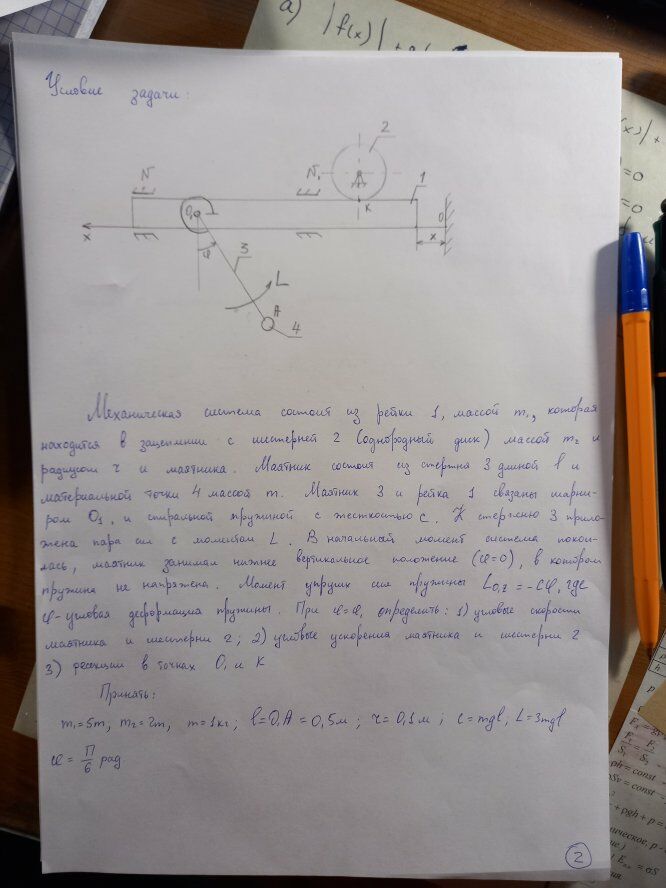 а) |f(x)| +
Условие задачи:
2
N
N₁
1
K
O₁
O
x
x
φ
3
L
A
4
Механическая система состоит из рейки 1, массой m₁, которая
находится в зацеплении с шестерней 2 (однородный диск) массой m₂ и
радиусом r и маятника. Маятник состоит из стержня 3 длиной l и
материальной точки 4 массой m. Маятник 3 и рейка 1 связаны шарни-
ром O₁ и спиральной пружиной с жесткостью c. К стержню 3 прило-
жена пара сил с моментом L. В начальный момент система покои-
лась, маятник занимал нижнее вертикальное положение (φ=0), в котором
пружина не напряжена. Момент упругих сил пружины L₀₁z = -cφ, где
φ-угловая деформация пружины. При φ=φ₁ определить: 1) угловые скорости
маятника и шестерни 2; 2) угловые ускорения маятника и шестерни 2
3) реакции в точках O₁ и K
Принять:
m₁=5m, m₂=2m, m=1кг; l=O₁A=0,5м; r=0,1м; c=mgl; L=3mgl
φ = π/6 рад.
2
ρh = const
= const
+ ρgh + p =